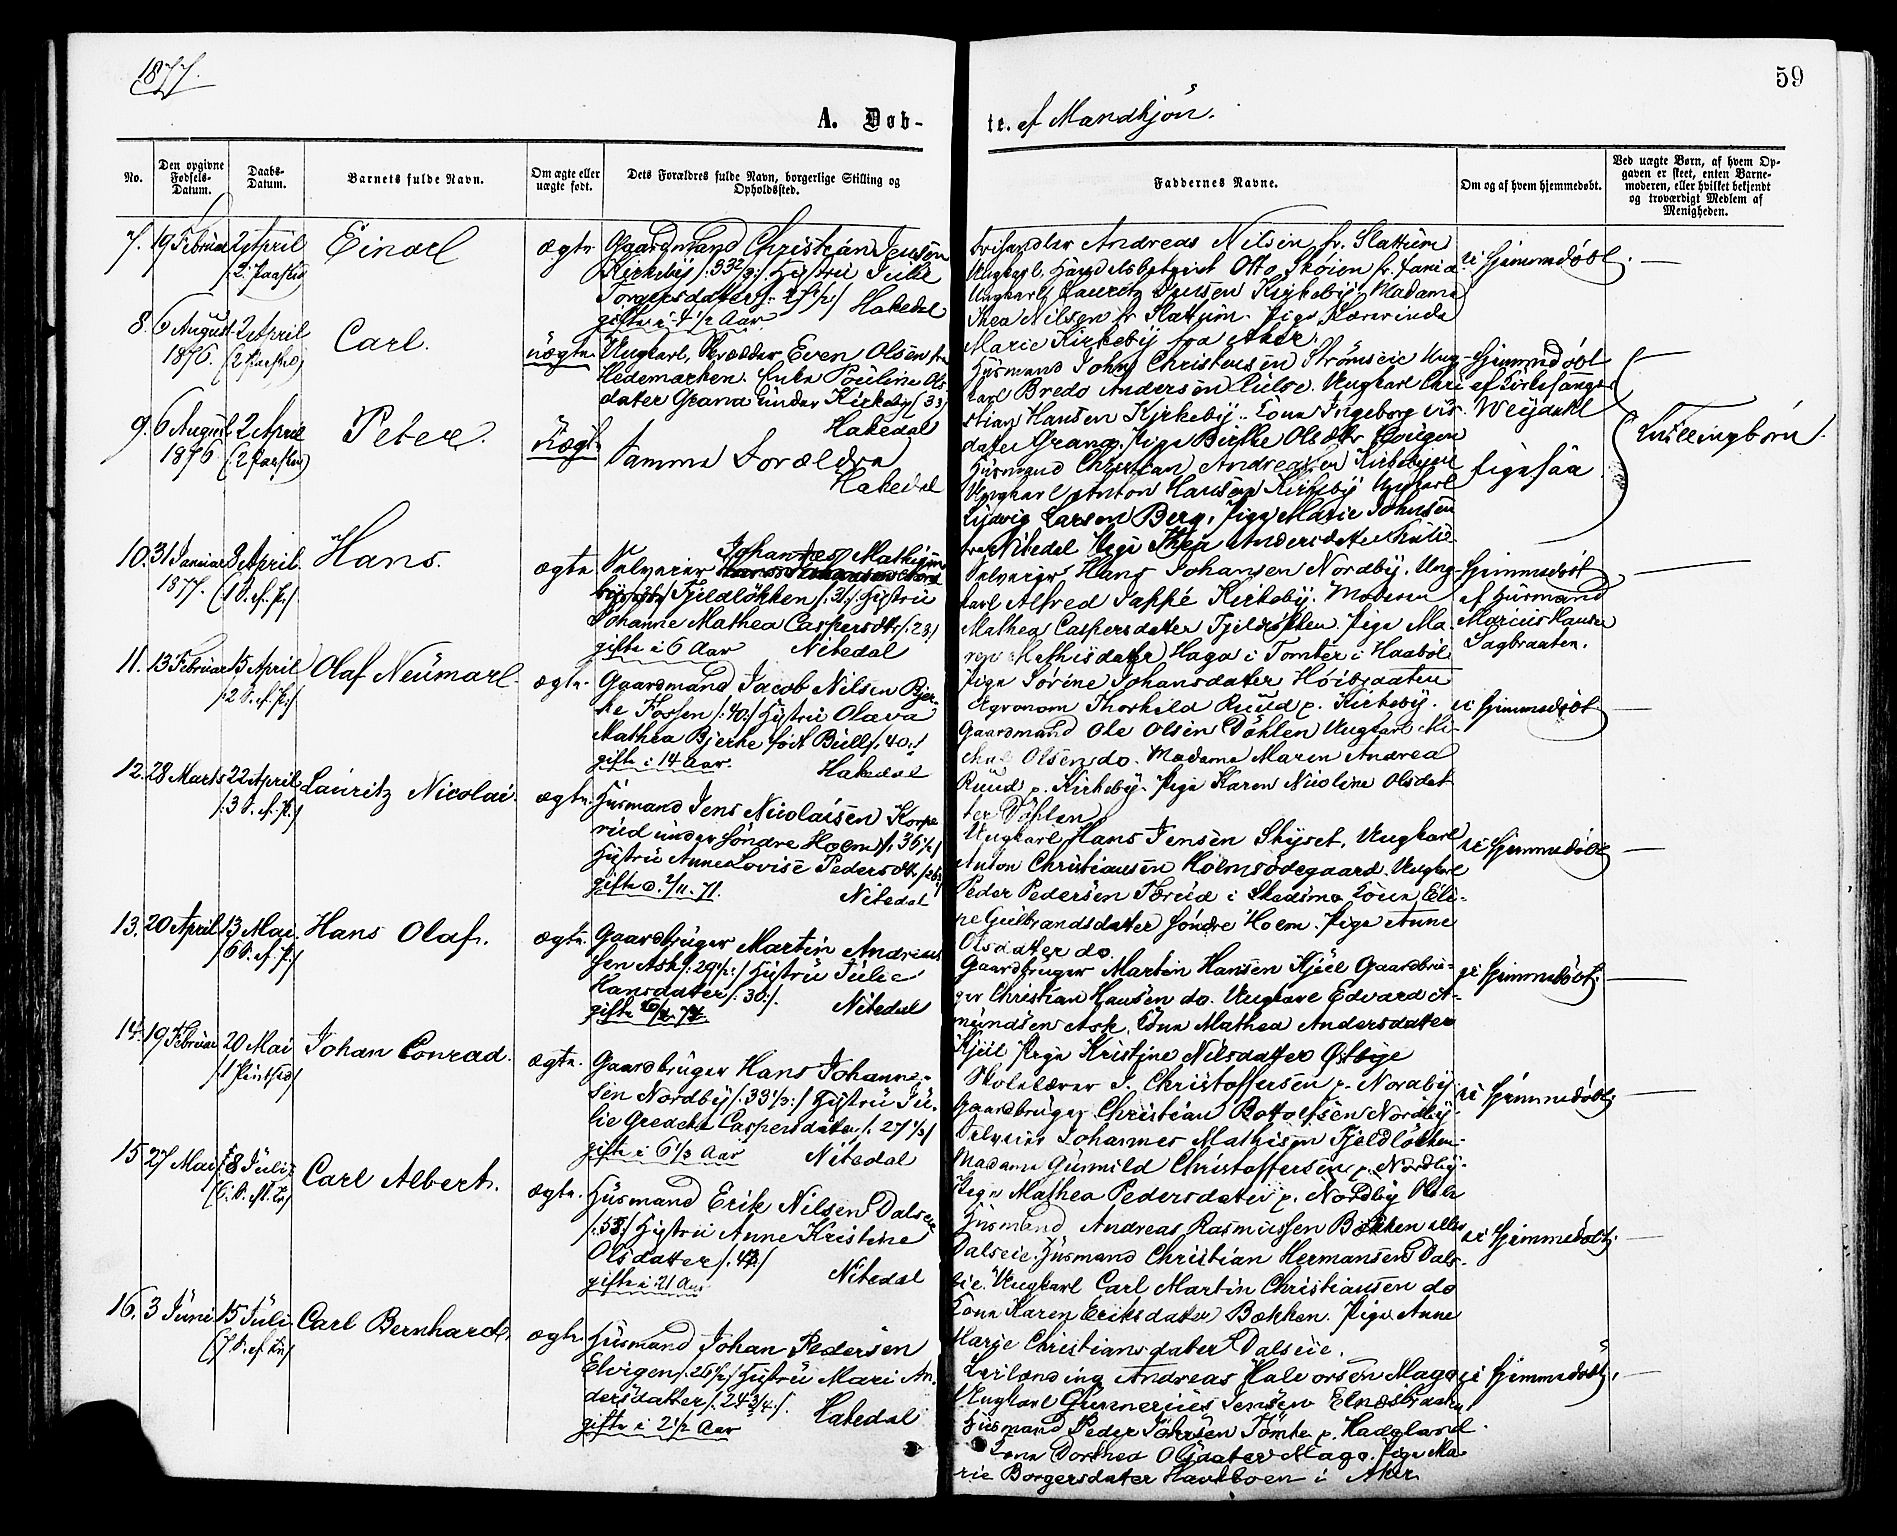 1877.
59
A. Døb-
te. af Mandkjøn.
No.
Den opgivne Fødsels-Datum.
Daabs-Datum.
Barnets fulde Navn.
Om ægte eller uægte født.
Dets Forældres fulde Navn, borgerlige Stilling og Opholdssted.
Faddernes Navne.
Om og af hvem hjemmedøbt.
Ved uægte Børn, af hvem Op-
gaven er skeet, enten Barne-
moderen, eller hvilket bekjendt
og troværdigt Medlem af
Menigheden.
7. 19 Februar 2 April Einar ægte
(2 Paaskd)
Gaardmand Christian Jensen
Kirkeby /: 33 2/3 :/ Hustru Julie
Torgersdatter Hakedal
gifte i 4 1/2 Aar
Andreas Nilsen fr. Slattum
Ungkarl Handelsbetjent Otto Skøien
Ungkarl Lauritz Jensen Kirkeby Madame
Thea Nilsen fr Slattum. Pige
Marie Kirkeby fra Aker.
ei hjemmedøbt.
8. 6 August 2 April Carl. uægte
1876. (2 Paaskd)
Ungkarl, Skrædder Even Olsen fra
Hedemarken. Enke Pouline Ols
datter Grana under Kirkeby (33)
Hakedal
Husmand John Christensen Strømseie Ung-
karl Bredo Andersen. Ungkarl Chri-
stian Hansen Kirkeby. Kona Ingeborg
datter Grana. Pige Birthe Olsdtr
hjemmedøbt
af Kirkesanger
Weydahl
9. 6 August 2 April Peter. uægte
1876 (2 Paaskd)
Samme Forældre
Hakedal
Husmand Christian Andreasen Kirkebyeie
Ungkarl Anton Hansen Kirkeby Ungkarl
Ludvig Larsen Berg, Pige Marie Johnsen
fra Nitedal Pige Thea Andersdatter
ligesaa
Tvillingbørn.
10. 31 Januar 8 April. Hans. ægte
1877. (1 S. ef. P.)
Selveier Johannes Mathisen
Fjeldløkken /: 31 :/ Hustru
Johanne Mathea Caspersdtr /: 28 :/
gifte i 6 Aar Nitedal
Selveier Hans Johansen Nordby. Ung-
karl Alfred Jappé Kirkeby. Moderen
Mathea Caspersdatter Fjeldløkken. Pige Ma-
ren Mathisdatter Haga i Tomter i Haabøl
Pige Sørine Johansdatter Høibraaten
hjemmedøbt
af Husmand
Marius Hansen
Sagbraaten.
11. 13 Februar 15 April Olaf Neumarl ægte
/: 2 S. ef. P. :/
Gaardmand Jacob Nilsen Bjer-
ke Fossen /: 40 :/ Hustru Olava
Mathea Bjerke født Bull /: 40 :/
gifte i 14 Aar. Hakedal
Agronom Thorkeld Ruud p. Kirkeby.
Gaardmand Ole Olsen Døhlen Ungkarl Mi-
chal Olsen do. Madame Maren Andrea
Ruud p. Kirkeby. Pige Karen Nicoline Olsdat-
ter Døhlen
ei hjemmedøbt
12. 28 Marts 22 April Lauritz Nicolai. ægte
/: 3 S. ef. P. :/
Husmand Jens Nicolaisen Korpe-
rud under Søndre Holm /: 36 1/2 :/
Hustru Anne Lovise Pedersdtr
gifte d. 2/11. 71. Nitedal
Ungkarl Hans Jensen Skyset, Ungkarl
Anton Christiansen Holmsødegaard. Ungkarl
Peder Pedersen i Skedsmo Kona Eli-
se Gulbrandsdatter Søndre Holm. Pige Anne
Olsdatter do.
ei hjemmedøbt
13. 20 April 13 Mai. Hans Olaf. ægte.
/: 6 S. ef. P. :/
Gaardbruger Martin Andreas-
sen Ask /: 29 1/2 :/ Hustru Julie
Hansdatter /: 30 :/. Nitedal
gifte
Gaardbruger Martin Hansen Kjul Gaardbru-
ger Christian Hansen do. Ungkarl Edvard A-
mundsen Ask. Kona Mathea Andersdatter
Kjul Pige Kristine Nilsdatter Østbye
ei hjemmedøbt.
14. 19 Februar 20 Mai Johan Conrad. ægte.
/: 1 Pintsed :/
Gaardbruger Hans Johanne-
sen Nordby /: 33 1/3 :/ Hustru Ju-
lie Gredeha Caspersdatter /: 27 1/3 :/
gifte i 6 1/3 Aar Nitedal
Skolelærer J. Christoffersen p. Nordby
Gaardbruger Christian Botolfsen Nordby.
Selveier Johannes Mathisen Fjeldløkken.
Madame Gunnild Christoffersen p. Nordby.
Pige Mathea Pedersdatter p. Nordby
ei hjemmedøbt
15. 27 Mai 8 Juli Carl Albert. ægte.
Husmand Erik Nilsen Dalseie
/: 53 :/ Hustru Anne Kristine
Olsdatter
gifte i 21 Aar Nitedal
Husmand Andreas Rasmussen Bækken eller
Dalseie. Husmand Christian Hermansen Dals-
eie. Ungkarl Carl Martin Christiansen do
Kona Karen Eriksdatter Bækken. Pige Anne
Marie Christiansdatter Dalseie.
ei hjemmedøbt.
16. 3 Juni 15 Juli Carl Bernhard. ægte.
Husmand Johan Pedersen
Elvigen /: 26 1/2 :/ Hustru Mari An-
dersdatter /: 24 3/4 :/.
gifte i 2 1/2 Aar Hakedal
Leilænding Andreas Halvorsen Mago
Ungkarl Gunnerius Jensen Elnesbraaten
Husmand Peder Tømte p. Hadeland.
Kona Dorthea Olsdatter Mago. Pige Ma-
rie Borgersdatter i Aker
ei hjemmedøbt.